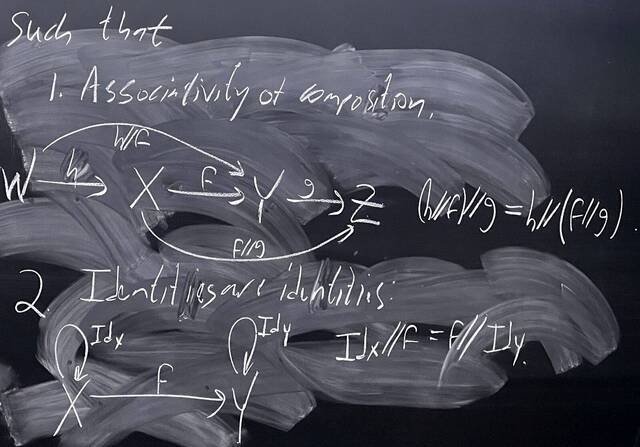 Such that
1. Associativity of composition.
h//f
W h X f Y g Z (h//f)//g = h//(f//g).
f//g
2. Identities are identitis:
Idx Idy Idx//f = f//Idy.
X f Y